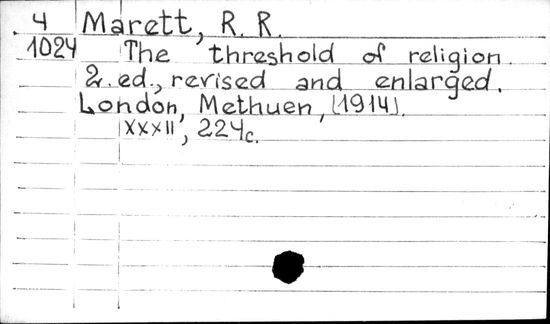 4 Marett, R. R.
1024 The threshold of religion.
2. ed., revised and enlarged.
London, Methuen, [1914].
XXXII, 224c.